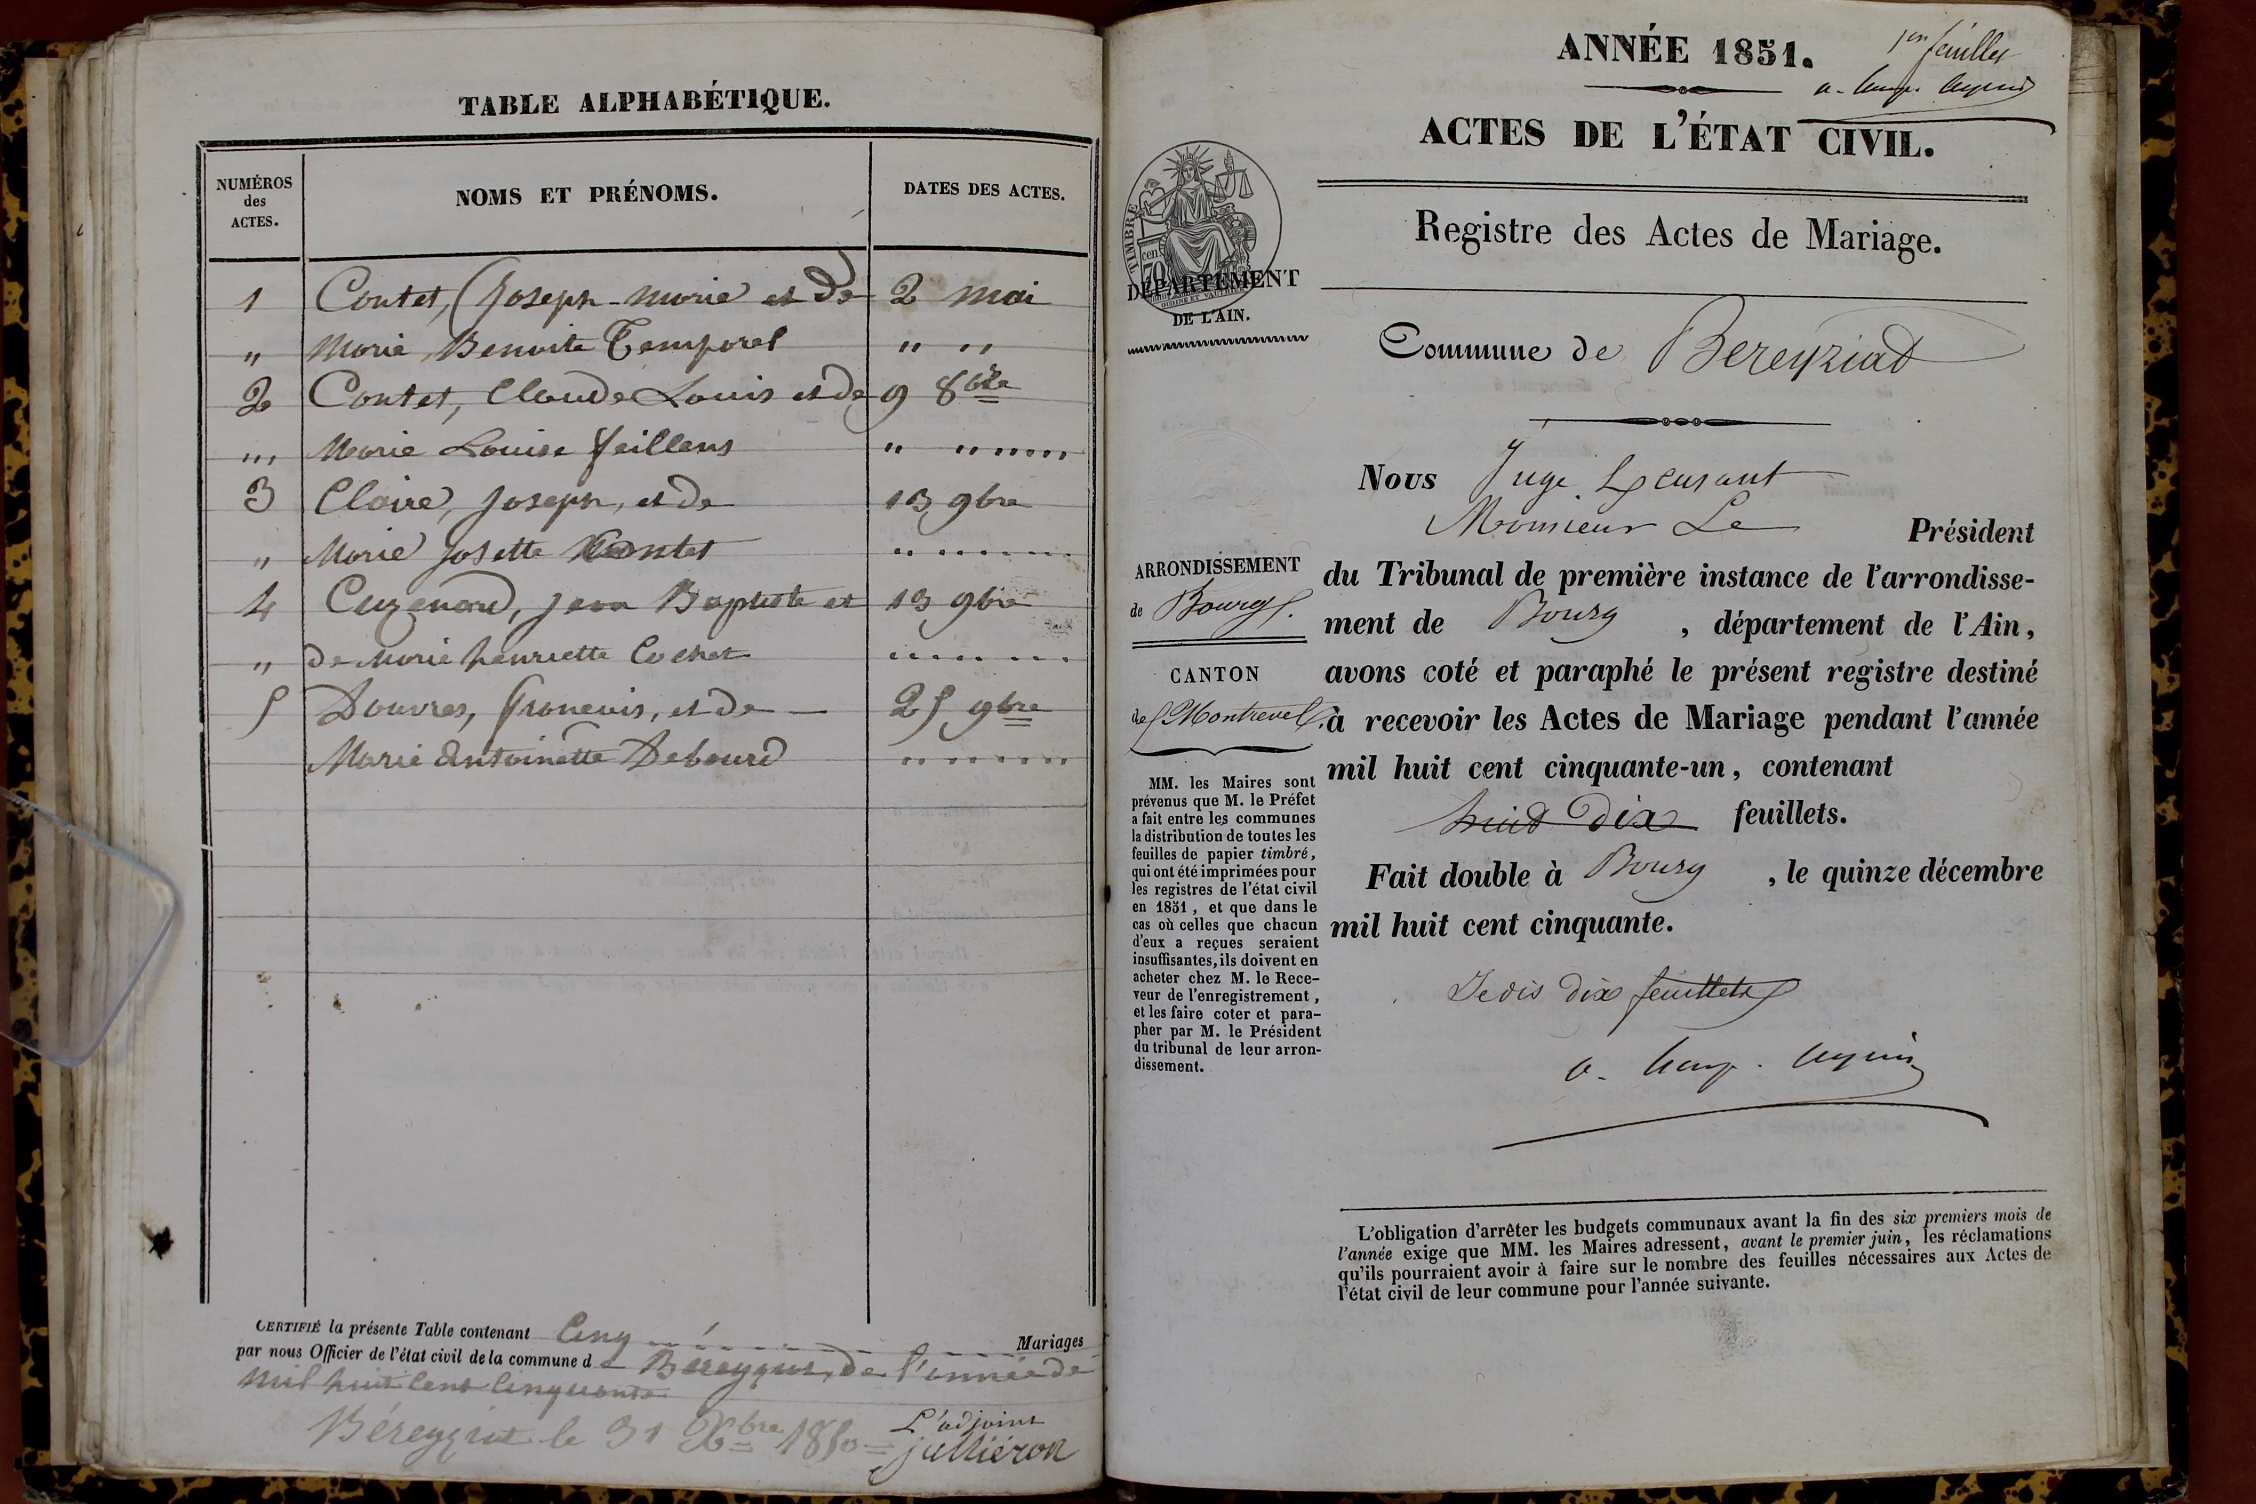 TABLE ALPHABÉTIQUE.
NUMÉROS
des
ACTES.
NOMS ET PRÉNOMS.
DATES DES ACTES.
1 Contet, (Joseph-Marie et de 2 mai
" Marie Benoite Temporel " "
2 Contet, Claude Louis et de 9 8bre
"' Marie Louise Feillens " " " " " "
3 Claire, Joseph, et de 13 9bre
" Marie Josette Contet " " " " " "
4 Cuzenard, Jean Baptiste et 13 9bre
" de Marie henriette Cochet " " " " " "
5 Douvres, François, et de 25 9bre
Marie Antoinette Debourd " " " " " "
CERTIFIÉ la présente Table contenant Cinq Mariages
par nous Officier de l'état civil de la commune de Béreyziat, de l'année de
mil huit cent cinquante
Béreyziat le 31 Xbre 1850
L'adjoint
julliéron
ANNÉE 1851.
1er feuillet
ACTES DE L'ÉTAT CIVIL.
TIMBRE
cen.
70
Registre des Actes de Mariage.
DÉPARTEMENT
DE L'AIN.
Commune de Bereyziat
Nous Juge
Monsieur Le Président
du Tribunal de première instance de l'arrondisse-
ment de Bourg , département de l'Ain,
avons coté et paraphé le présent registre destiné
à recevoir les Actes de Mariage pendant l'année
mil huit cent cinquante-un, contenant
huit dix feuillets.
Fait double à Bourg , le quinze décembre
mil huit cent cinquante.
Je dis dix feuillets
ARRONDISSEMENT
de Bourg.
CANTON
de Montrevel.
MM. les Maires sont
prévenus que M. le Préfet
a fait entre les communes
la distribution de toutes les
feuilles de papier timbré,
qui ont été imprimées pour
les registres de l'état civil
en 1851, et que dans le
cas où celles que chacun
d'eux a reçues seraient
insuffisantes, ils doivent en
acheter chez M. le Rece-
veur de l'enregistrement,
et les faire coter et para-
pher par M. le Président
du tribunal de leur arron-
dissement.
L'obligation d'arrêter les budgets communaux avant la fin des six premiers mois de
l'année exige que MM. les Maires adressent, avant le premier juin, les réclamations
qu'ils pourraient avoir à faire sur le nombre des feuilles nécessaires aux Actes de
l'état civil de leur commune pour l'année suivante.